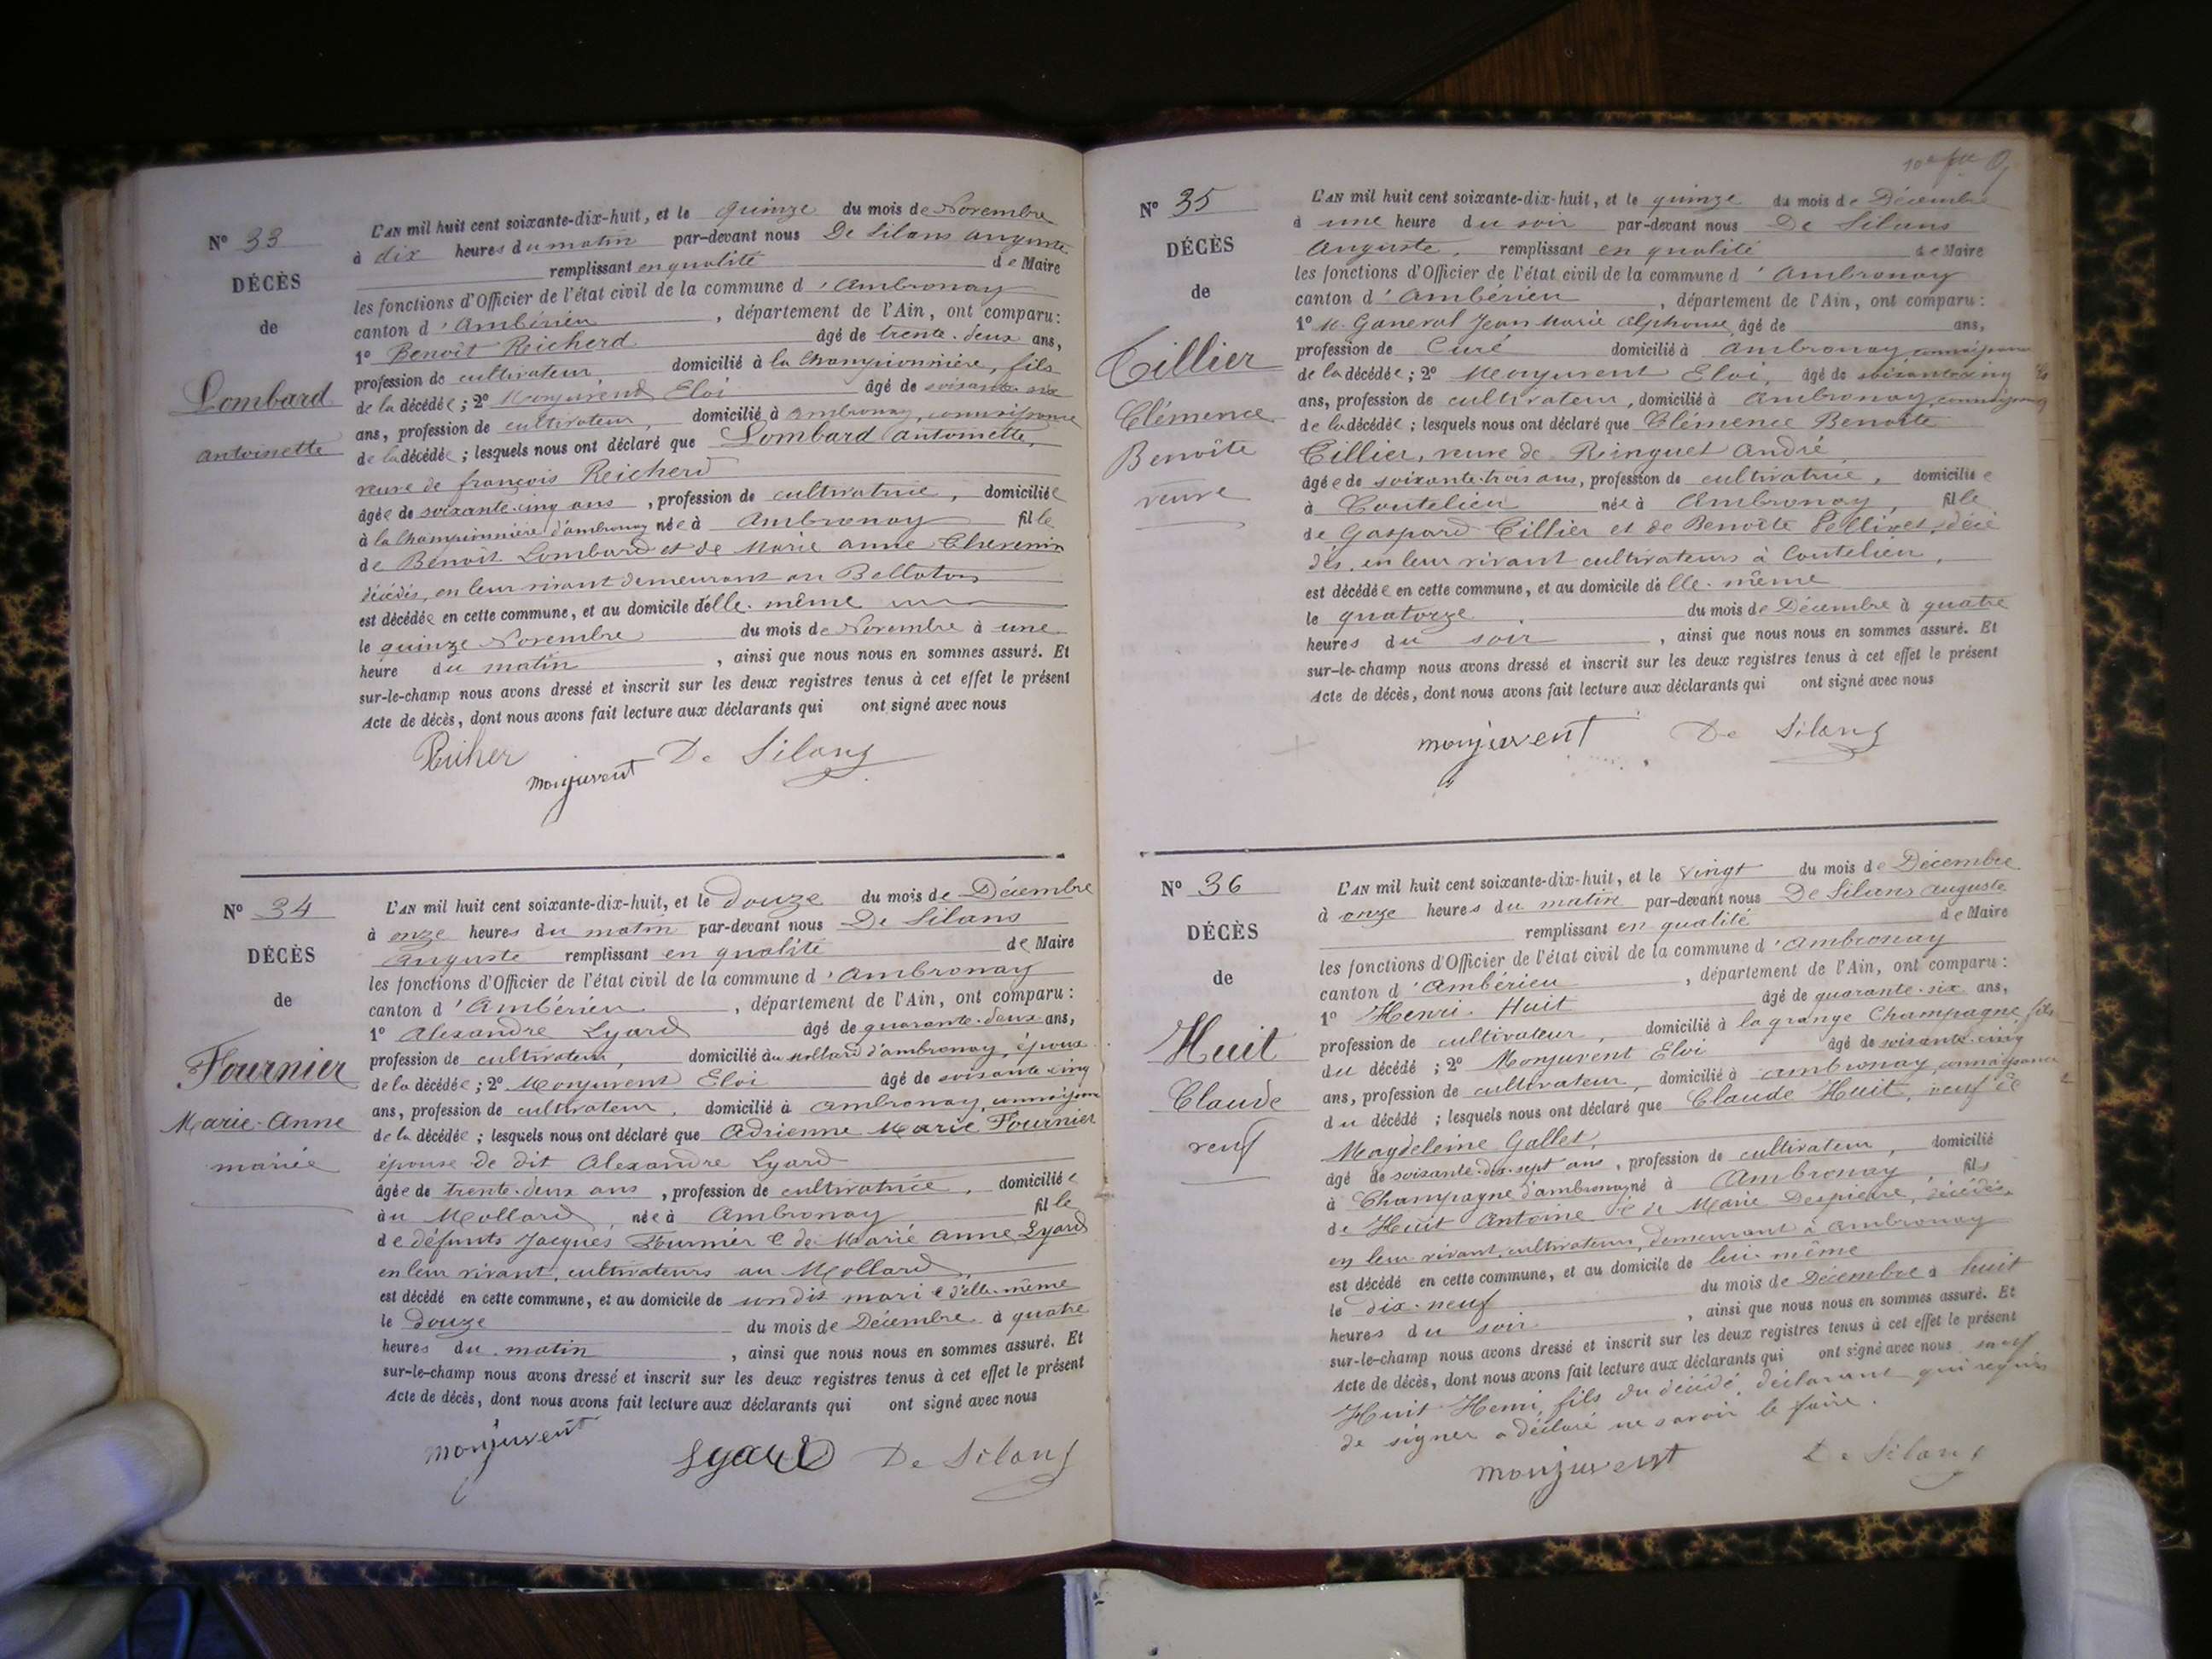 N° 33
DÉCÈS
de
Lombard
antoinette
L'AN mil huit cent soixante-dix-huit, et le quinze du mois de Novembre
à dix heures du matin par-devant nous De Silans auguste
remplissant en qualité de Maire
les fonctions d'Officier de l'état civil de la commune d'Ambronay
canton d'Ambérieu, département de l'Ain, ont comparu:
1° Benoît Reicherd âgé de trente-deux ans,
profession de cultivateur domicilié à la Championnière, fils
de la décédée; 2° Monjuvent Eloi âgé de soixante six
ans, profession de cultivateur, domicilié à ambronay, connaissance
de la décédée; lesquels nous ont déclaré que Lombard antoinette,
veuve de françois Reicherd
âgée de soixante-cinq ans, profession de cultivatrice, domiciliée
à la Championnière d'ambronay née à Ambronay fille
de Benoît Lombard et de Marie anne Chevenin
décédés, en leur vivant demeurant au Bellaton
est décédée en cette commune, et au domicile d'elle-même
le quinze Novembre du mois de Novembre à une
heure du matin, ainsi que nous nous en sommes assuré. Et
sur-le-champ nous avons dressé et inscrit sur les deux registres tenus à cet effet le présent
Acte de décès, dont nous avons fait lecture aux déclarants qui ont signé avec nous
Richer monjuvent De Silans
N° 34
DÉCÈS
de
Fournier
Marie-Anne
mariée
L'AN mil huit cent soixante-dix-huit, et le douze du mois de Décembre
à onze heures du matin par-devant nous De Silans
Auguste remplissant en qualité de Maire
les fonctions d'Officier de l'état civil de la commune d'Ambronay
canton d'Ambérieu, département de l'Ain, ont comparu:
1° Alexandre Lyard âgé de quarante-deux ans,
profession de cultivateur, domicilié au Mollard d'ambronay, époux
de la décédée; 2° Monjuvent Eloi âgé de soixante cinq
ans, profession de cultivateur, domicilié à ambronay,
de la décédée; lesquels nous ont déclaré que Adrienne Marie Fournier
épouse de dit Alexandre Lyard
âgée de trente-deux ans, profession de cultivatrice, domiciliée
au Mollard, née à Ambronay fille
de défunts Jacques Fournier & de Marie Anne Lyard
en leur vivant, cultivateurs au Mollard,
est décédé en cette commune, et au domicile de sondit mari & d'elle-même
le douze du mois de Décembre à quatre
heures du matin, ainsi que nous nous en sommes assuré. Et
sur-le-champ nous avons dressé et inscrit sur les deux registres tenus à cet effet le présent
Acte de décès, dont nous avons fait lecture aux déclarants qui ont signé avec nous
monjuvent Lyard De Silans
N° 35
DÉCÈS
de
Tillier
Clémence
Benoîte
veuve
L'AN mil huit cent soixante-dix-huit, et le quinze du mois de Décembre
à une heure du soir par-devant nous De Silans
Auguste, remplissant en qualité de Maire
les fonctions d'Officier de l'état civil de la commune d'Ambronay
canton d'Ambérieu, département de l'Ain, ont comparu:
1° M. Ganeval Jean Marie Alphonse, âgé de ans,
profession de Curé domicilié à Ambronay
de la décédée; 2° Monjuvent Eloi, âgé de soixante cinq
ans, profession de cultivateur, domicilié à Ambronay
de la décédée; lesquels nous ont déclaré que Clémence Benoîte
Tillier, veuve de Reinguet André
âgée de soixante-trois ans, profession de cultivatrice, domiciliée
à Coutelieu née à Ambronay, fille
de Gaspard Tillier et de Benoîte Pellivet, décé
dés, en leur vivant cultivateurs à Coutelieu,
est décédée en cette commune, et au domicile d'elle-même
le quatorze du mois de Décembre à quatre
heures du soir, ainsi que nous nous en sommes assuré. Et
sur-le-champ nous avons dressé et inscrit sur les deux registres tenus à cet effet le présent
Acte de décès, dont nous avons fait lecture aux déclarants qui ont signé avec nous
monjuvent De Silans
N° 36
DÉCÈS
de
Huit
Claude
veuf
L'AN mil huit cent soixante-dix-huit, et le vingt du mois de Décembre
à onze heures du matin par-devant nous De Silans auguste
remplissant en qualité de Maire
les fonctions d'Officier de l'état civil de la commune d'Ambronay
canton d'Ambérieu, département de l'Ain, ont comparu:
1° Henri Huit âgé de quarante-six ans,
profession de cultivateur, domicilié à la grange Champagne, fils
du décédé; 2° Monjuvent Eloi âgé de soixante-cinq
ans, profession de cultivateur, domicilié à ambronay, connaissance
du décédé; lesquels nous ont déclaré que Claude Huit, veuf de
Magdeleine Gallet,
âgé de soixante-dix-sept ans, profession de cultivateur, domicilié
à Champagne d'ambronay né à Ambronay fils
de Huit Antoine & de Marie Despierre, décédés
en leur vivant, cultivateurs, demeurant à Ambronay
est décédé en cette commune, et au domicile de lui-même
le dix-neuf du mois de Décembre à huit
heures du soir, ainsi que nous nous en sommes assuré. Et
sur-le-champ nous avons dressé et inscrit sur les deux registres tenus à cet effet le présent
Acte de décès, dont nous avons fait lecture aux déclarants qui ont signé avec nous sauf
Huit Henri, fils du décédé, déclarant qui requis
de signer a déclaré ne savoir le faire.
monjuvent De Silans